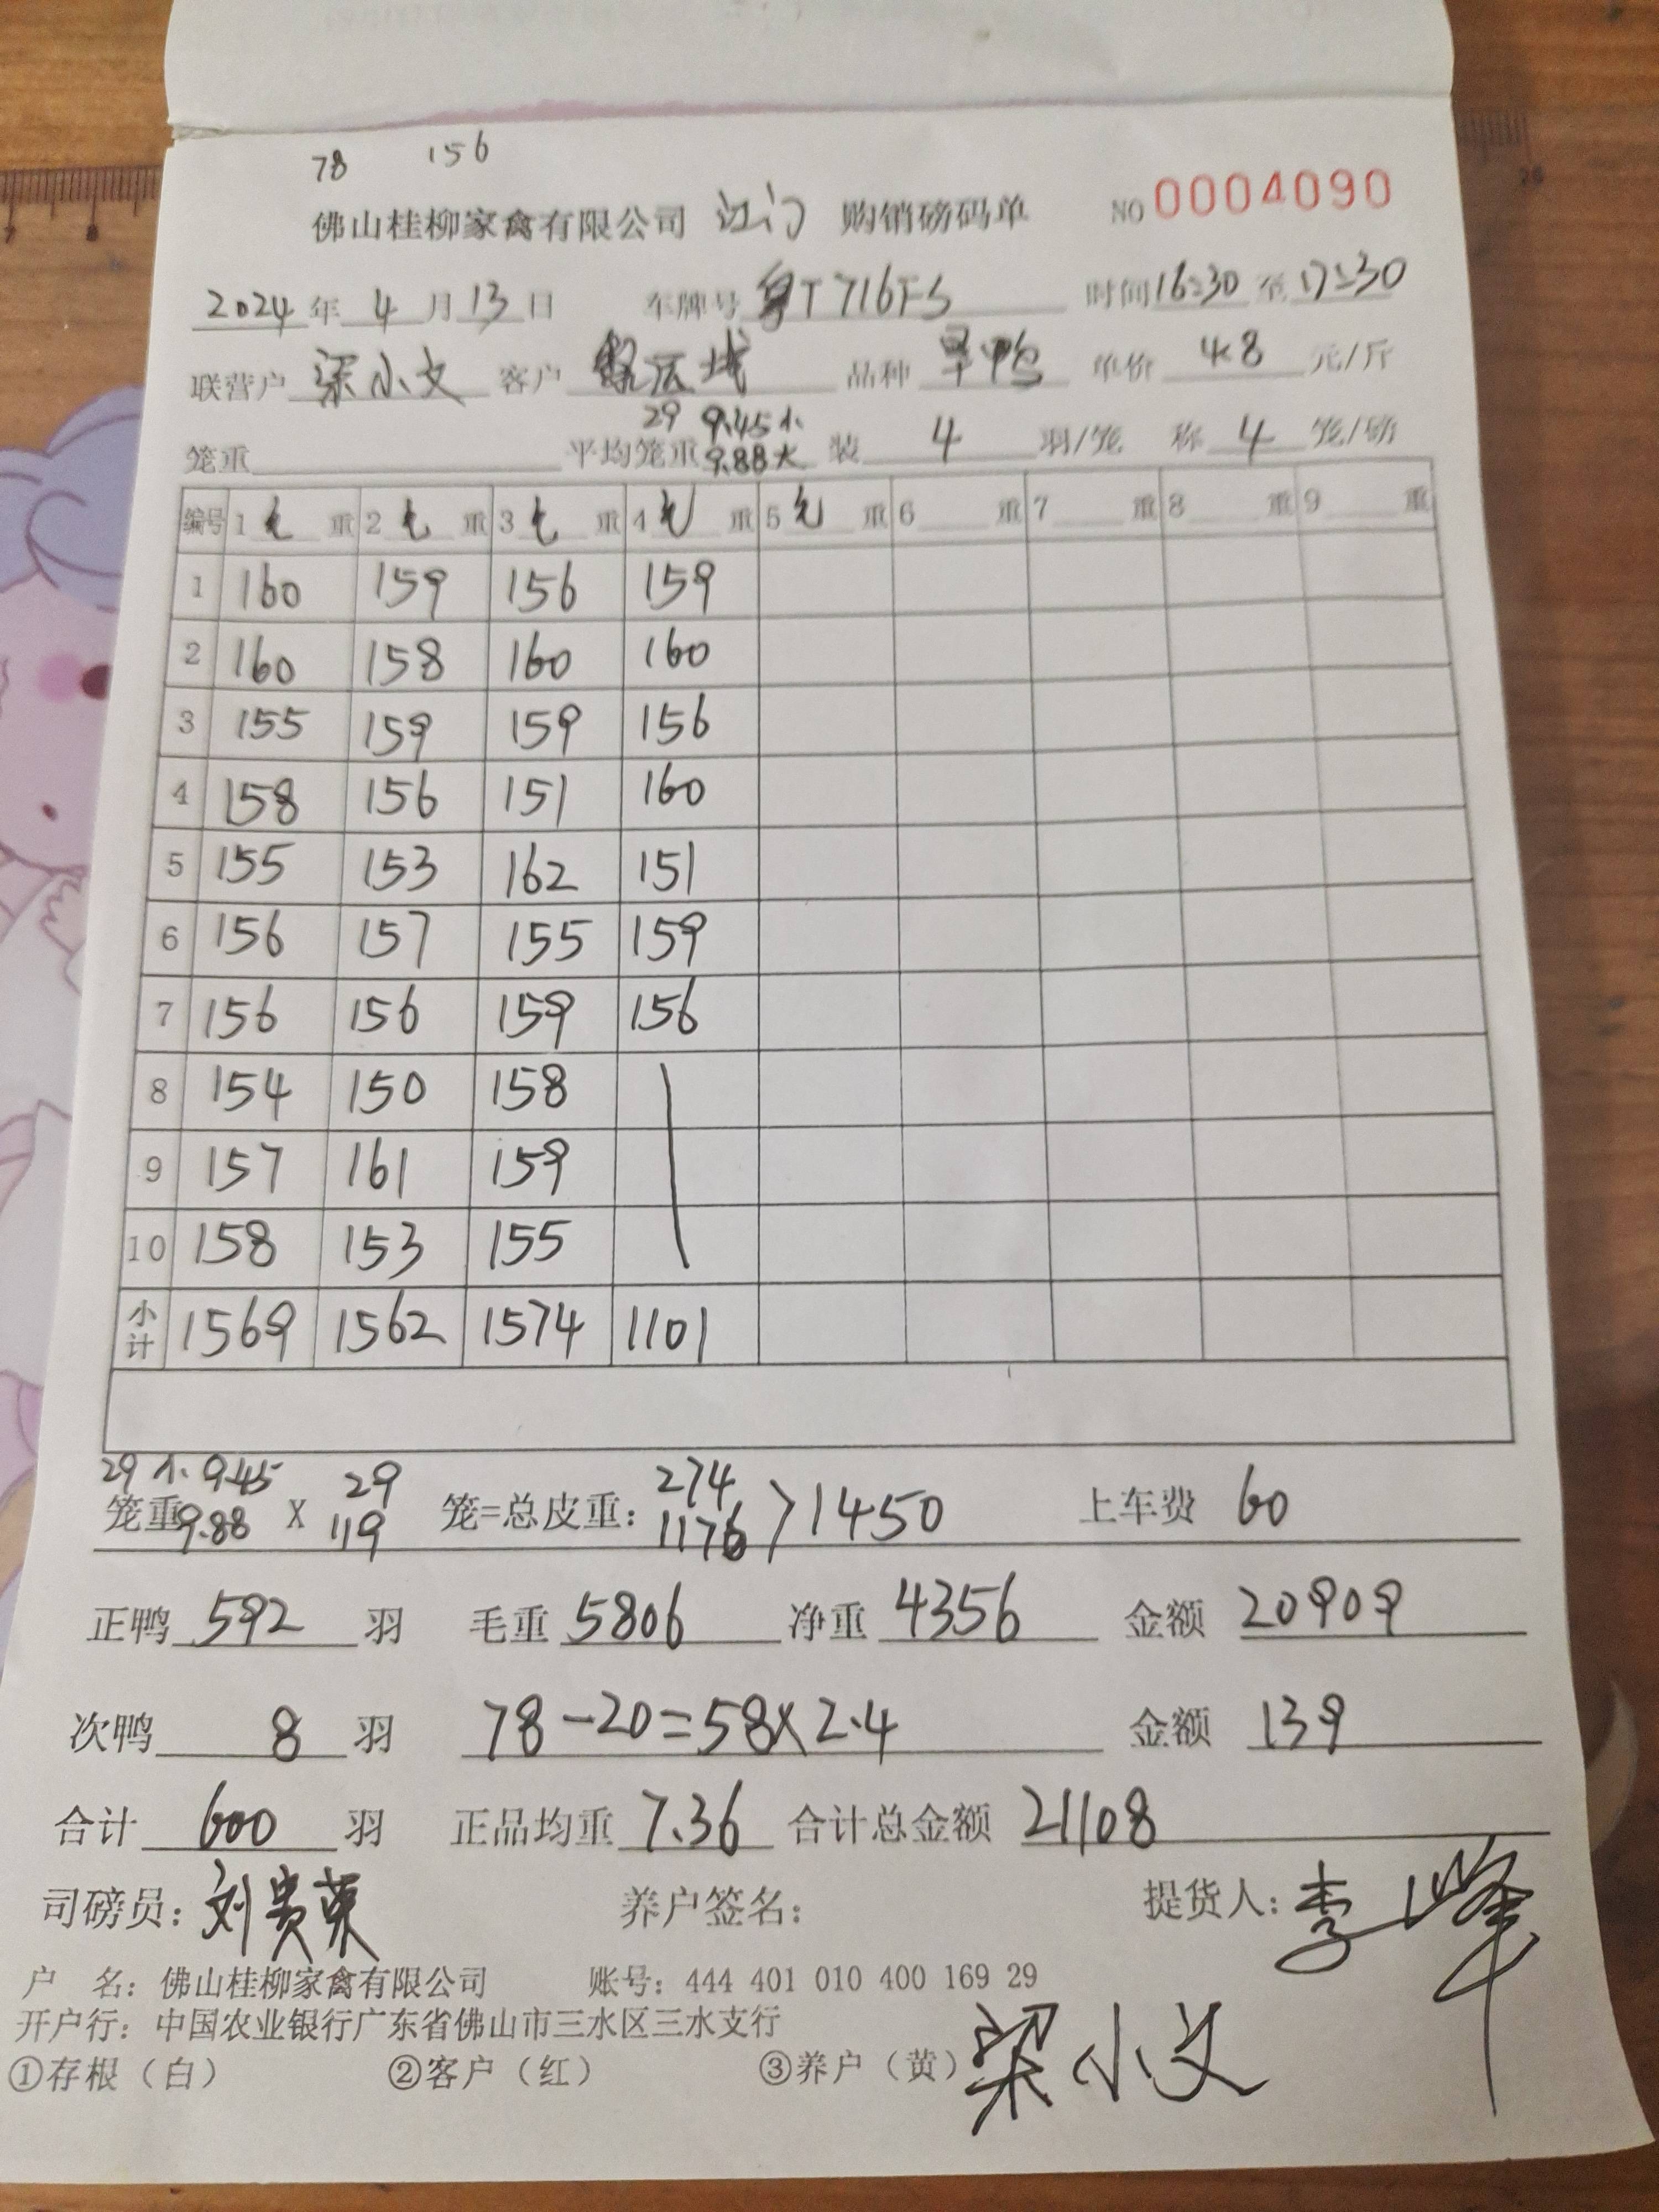 78 156
佛山桂柳家禽有限公司 江门 购销磅码单 NO 0004090
2024 年 4 月 13 日 车牌号 粤T716FS 时间 16:30 至 17:30
联营户 梁小文 客户 品种 旱鸭 单价 4.8 元/斤
29 9.45小
笼重 平均笼重 9.88大 装 4 羽/笼 称 4 笼/磅
编号 1 毛 重 2 毛 重 3 毛 重 4 毛 重 5 毛 重 6 重 7 重 8 重 9 重
1 160 159 156 159
2 160 158 160 160
3 155 159 159 156
4 158 156 151 160
5 155 153 162 151
6 156 157 155 159
7 156 156 159 156
8 154 150 158
9 157 161 159
10 158 153 155
小计 1569 1562 1574 1101
29 小 9.45 29 274
笼重 9.88 X 119 笼=总皮重: 1176 > 1450 上车费 60
正鸭 592 羽 毛重 5806 净重 4356 金额 20909
次鸭 8 羽 78-20=58×2.4 金额 139
合计 600 羽 正品均重 7.36 合计总金额 21108
司磅员: 刘贵荣 养户签名: 提货人: 李峰
户 名: 佛山桂柳家禽有限公司 账号: 444 401 010 400 169 29
开户行: 中国农业银行广东省佛山市三水区三水支行
①存根（白） ②客户（红） ③养户（黄） 梁小文